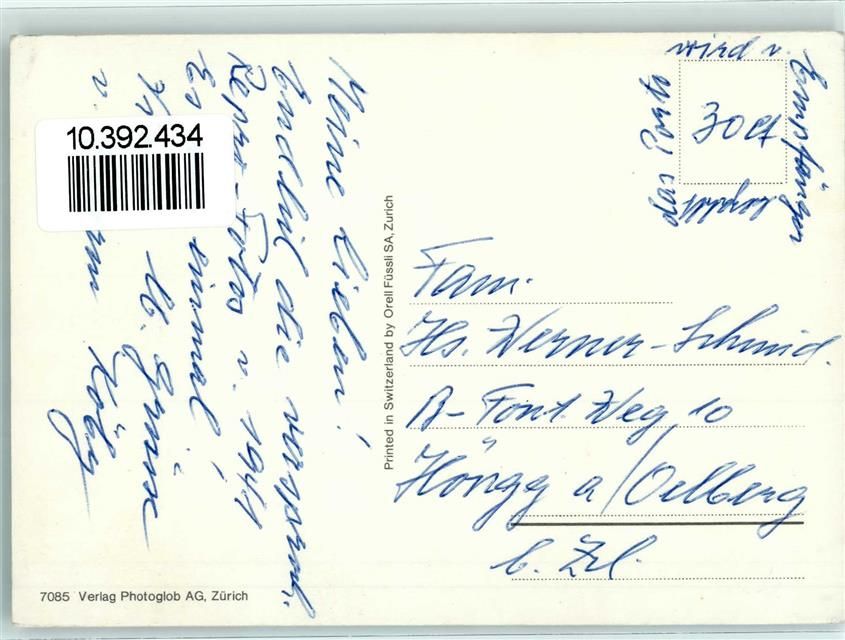 Meine Lieben!
Endlich die versproch.
Repro-Fotos v. 1941
Es einmal!
U. Grüsse
v. Köbg
10.392.434
Printed in Switzerland by Orell Füssli SA, Zurich
wird v.
Empfänger
bezahlt
30 ct
Fam.
Hs. Werner-Schmid.
A- Font. Weg 10
Höngg a/Oelberg
b. Zch.
7085 Verlag Photoglob AG, Zürich